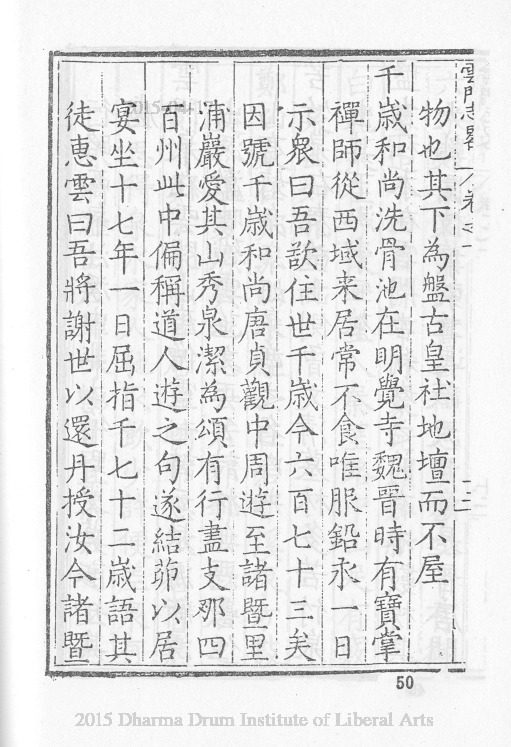 雲門志畧 卷之一
物也其下為盤古皇社地壇而不屋
千歳和尚洗骨池在明覺寺魏晋時有寶掌
禪師從西域来居常不食唯服鉛汞一日
示衆曰吾欲住世千歳今六百七十三矣
因號千歳和尚唐貞觀中周遊至諸暨里
浦巖愛其山秀泉潔為頌有行盡支那四
百州此中偏稱道人遊之句遂結茆以居
宴坐十七年一日屈指千七十二歳語其
徒惠雲曰吾將謝世以還丹授汝今諸暨
50
2015 Dharma Drum Institute of Liberal Arts